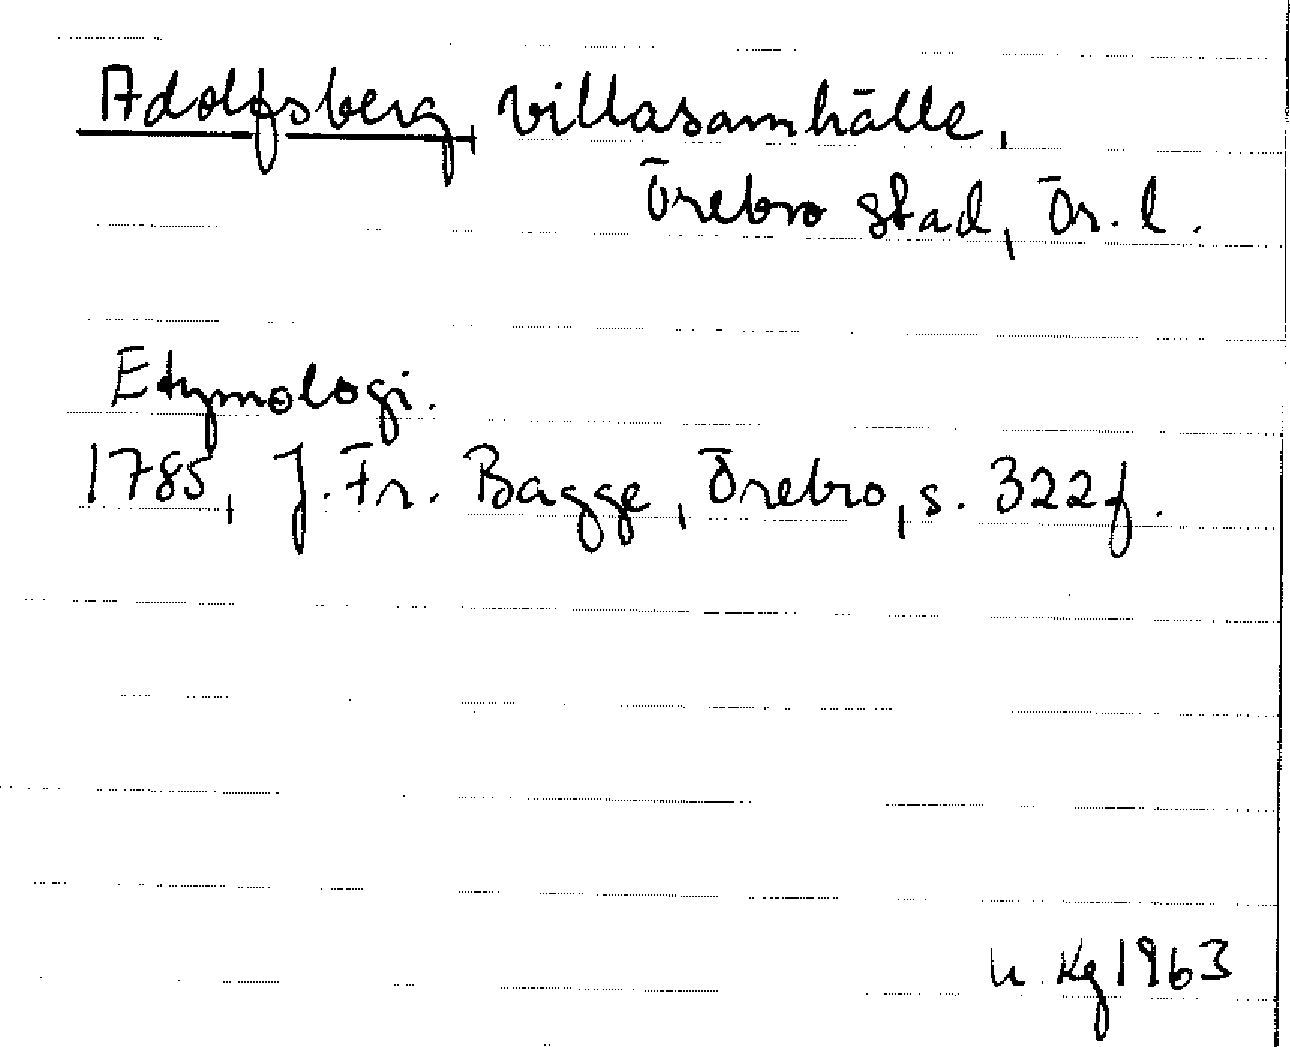 Adolfsberg, villasamhälle,
Örebro stad, Ör. l.
Etymologi.
1785, J. Fr. Bagge, Örebro, s. 322f.
Kg 1963